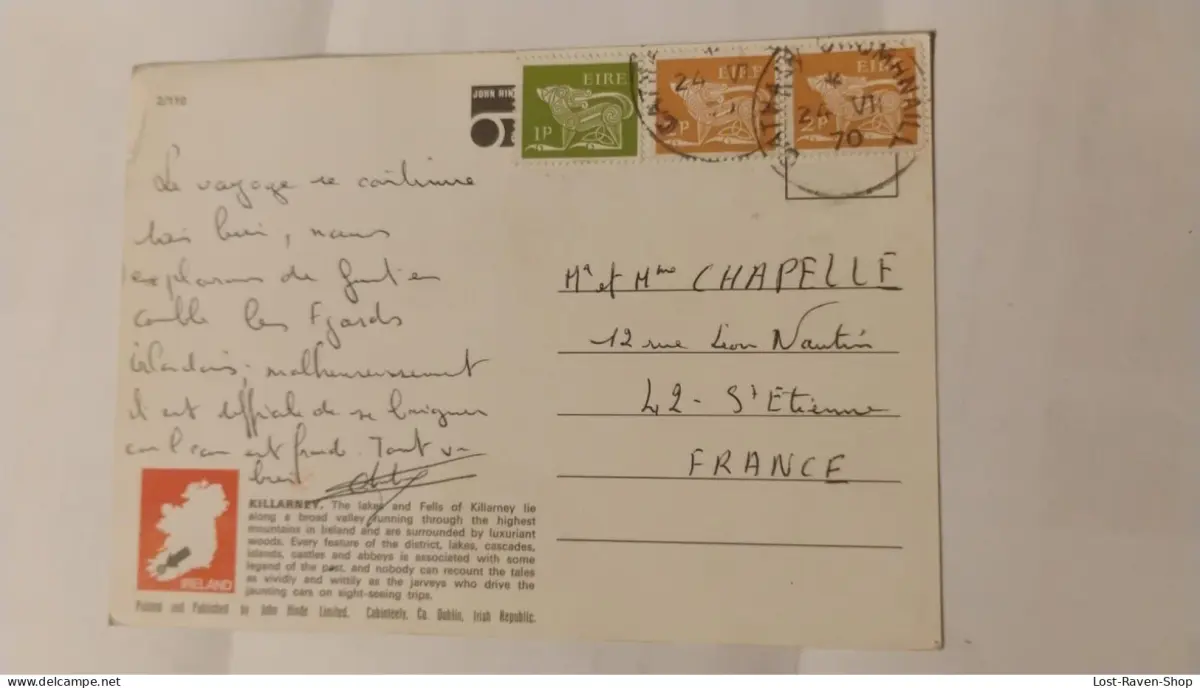 2/110
JOHN HIN
EIRE
1P
EIRE
P
24 VI
EIRE
2P
24 VII
70
Le voyage se continue
très bien, nous
explorons de fond en
comble les Fjords
irlandais; malheureusement
il est difficile de se baigner
car l'eau est froide. Tout va
bien
Mr et Mme CHAPELLE
12 rue Léon Nautin
42 - St Etienne
FRANCE
IRELAND
KILLARNEY. The lakes and Fells of Killarney lie
along a broad valley running through the highest
mountains in Ireland and are surrounded by luxuriant
woods. Every feature of the district, lakes, cascades,
islands, castles and abbeys is associated with some
legend of the past, and nobody can recount the tales
as vividly and wittily as the jarveys who drive the
jaunting cars on sight-seeing trips.
Printed and Published by John Hinde Limited, Cabinteely, Co. Dublin, Irish Republic.
Lost-Raven-Shop